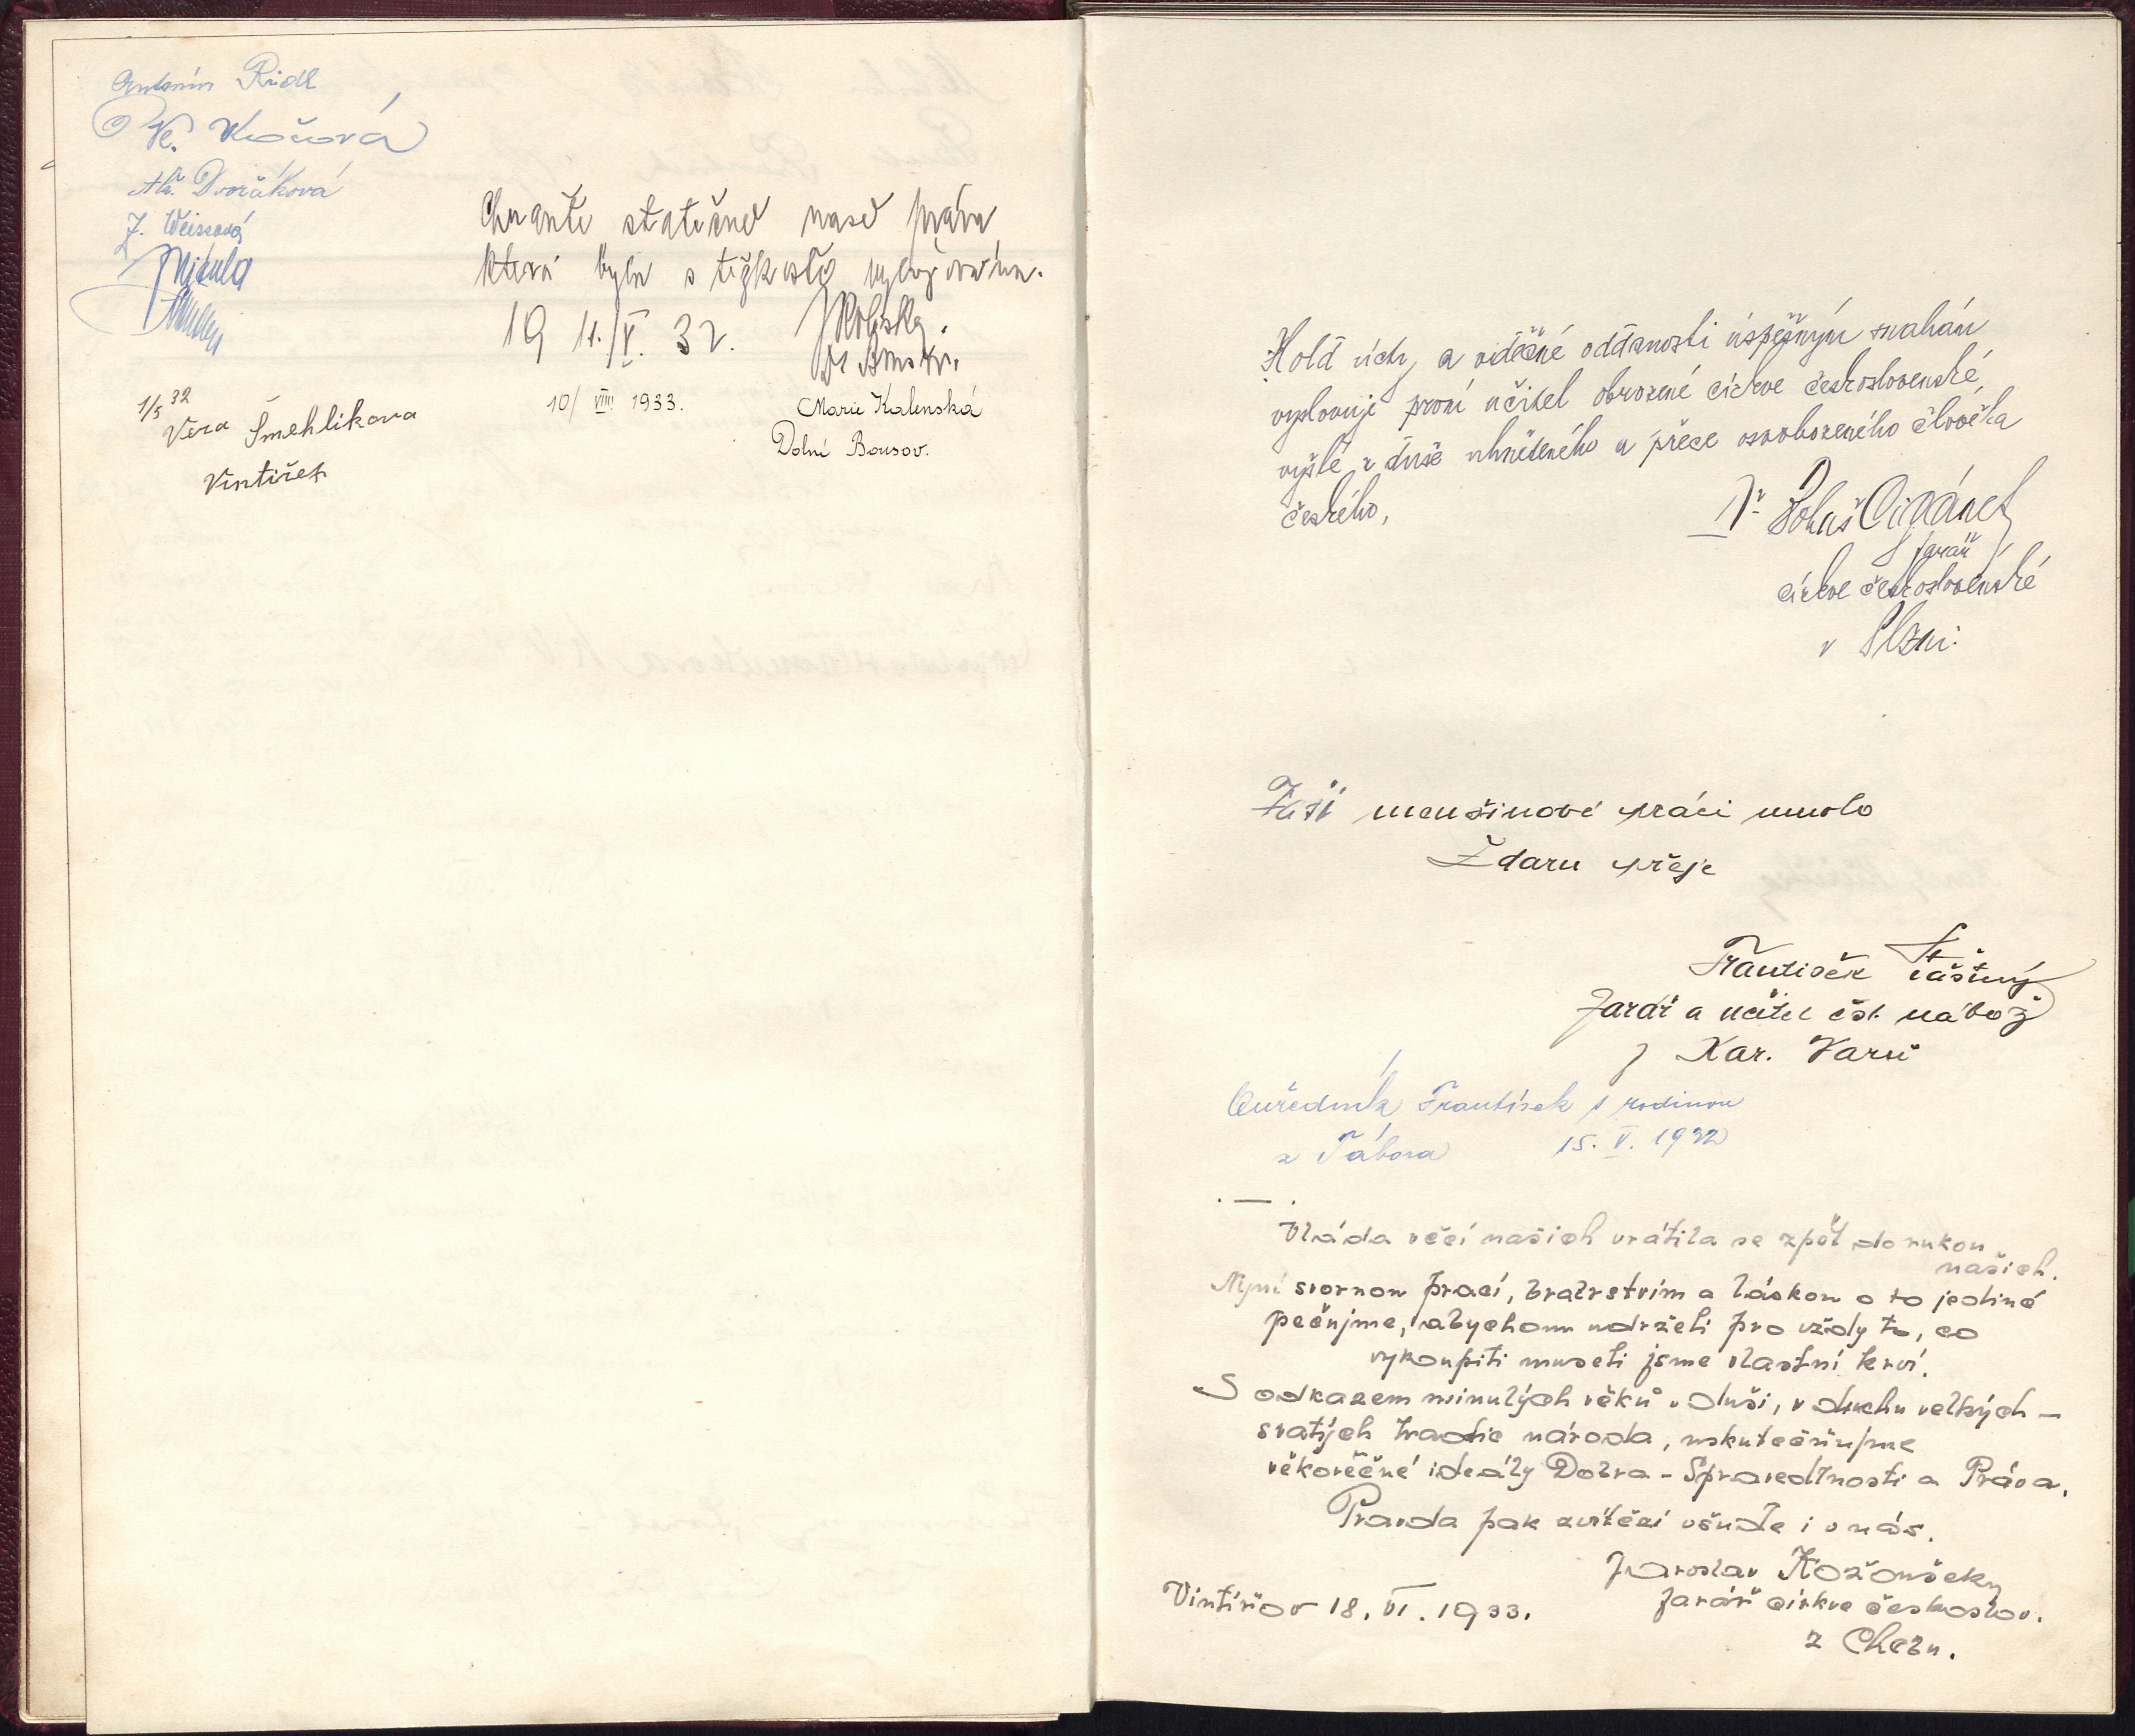 Antonín Riedl
Vl. Kočová
Al. Dvořáková
J. Weissová
Chraňte statečně naše práva
která byla s těžkostí vybojována.
19 11./V. 32.
1/5 32
Věra Šmehlikova
Vintířov
10/ VIII 1933.
Marie Kalenská
Dolní Bousov.
Hold úcty a vděčné oddanosti úspěšným snahám
vyslovuje první učitel obrozené církve československé,
vyšlé z duše uhněteného a přece osvobozeného člověka
českého,
Dr Lukáš Cigánek
farář
církve československé
v Plzni.
Vaší menšinové práci mnoho
Zdaru přeje
František Šťastný
farář a učitel čsl. nábož
z Kar. Varů
Ouředník František s rodinou
z Tábora 15. V. 1932
Vláda věcí našich vrátila se zpět do rukou
našich.
Nyní svornou prací, bratrstvím a láskou o to jedině
pečujme, abychom udrželi pro vždy to, co
vykoupiti museli jsme vlastní krví.
S odkazem minulých věků v duši, v duchu velkých -
svatých tradic národa, uskutečňujme
věkověčné ideály Dobra - Spravedlnosti a Práva.
Pravda pak zvítězí všude i u nás.
Jaroslav Kožoušek
farář církve českoslov.
z Chebu.
Vintířov 18. VI. 1933.